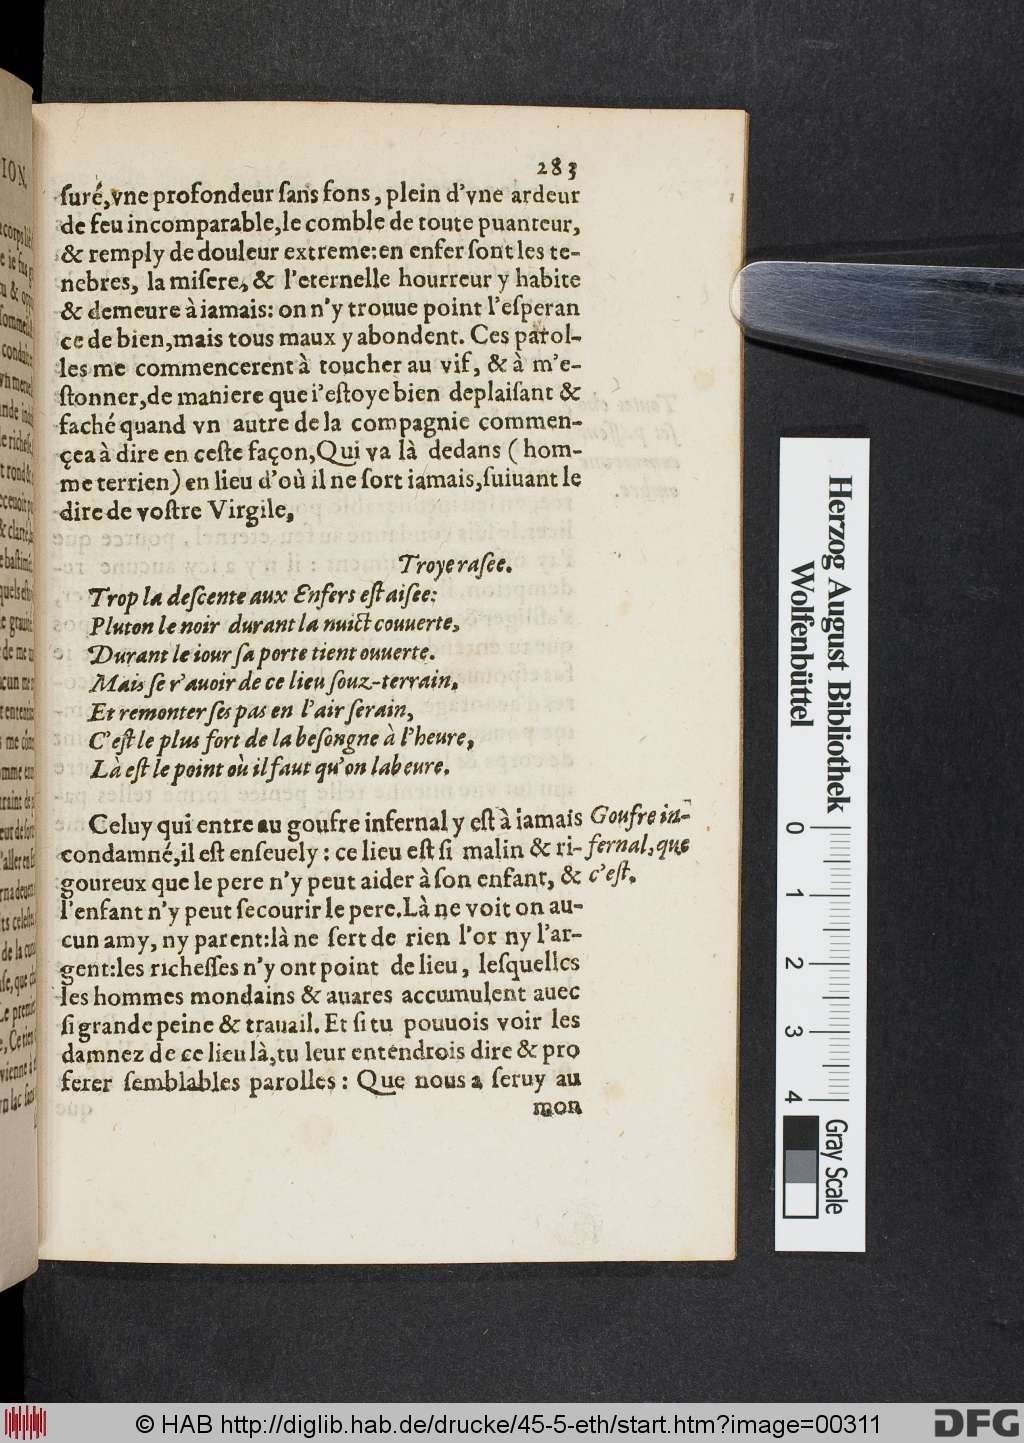 283
ſuré,vne profondeur ſans fons, plein d'vne ardeur
de feu incomparable,le comble de toute puanteur,
& remply de douleur extreme:en enfer ſont les te-
nebres, la miſere, & l'eternelle hourreur y habite
& demeure à iamais: on n'y trouue point l'eſperan
ce de bien,mais tous maux y abondent. Ces parol-
les me commencerent à toucher au vif, & à m'e-
ſtonner,de maniere que i'eſtoye bien deplaiſant &
faché quand vn autre de la compagnie commen-
çea à dire en ceſte façon,Qui va là dedans ( hom-
me terrien) en lieu d'où il ne ſort iamais,ſuiuant le
dire de voſtre Virgile,
Troye raſee.
Trop la deſcente aux Enfers eſt aiſee:
Pluton le noir durant la nuict couuerte,
Durant le iour ſa porte tient ouuerte.
Mais ſe r'auoir de ce lieu ſouz-terrain,
Et remonter ſes pas en l'air ſerain,
C'eſt le plus fort de la beſongne à l'heure,
Là eſt le point où il faut qu'on labeure.
Celuy qui entre au goufre infernal y eſt à iamais
condamné,il eſt enſeuely : ce lieu eſt ſi malin & ri-
goureux que le pere n'y peut aider à ſon enfant, &
l'enfant n'y peut ſecourir le pere.Là ne voit on au-
cun amy, ny parent:là ne ſert de rien l'or ny l'ar-
gent:les richeſſes n'y ont point de lieu, leſquelles
les hommes mondains & auares accumulent auec
ſi grande peine & trauail. Et ſi tu pouuois voir les
damnez de ce lieu là,tu leur entendrois dire & pro
ferer ſemblables parolles : Que nous a ſeruy au
mon
Goufre in-
fernal, que
c'eſt.
Herzog August Bibliothek
Wolfenbüttel
0 1 2 3 4
Gray Scale
© HAB http://diglib.hab.de/drucke/45-5-eth/start.htm?image=00311
DFG